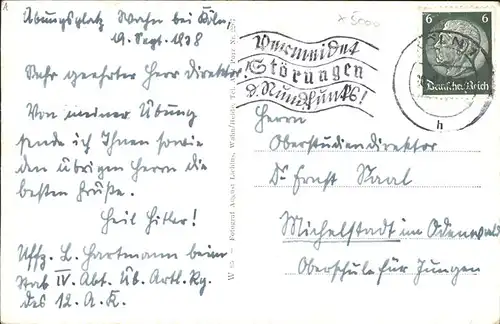 Übungsplatz Wahn bei Köln,
19. Sept. 1938
Sehr geehrter Herr Direktor!
Von meiner Übung
sende ich Ihnen sowie
den übrigen Herrn die
besten Grüße.
Heil Hitler!
Uffz. L. Hartmann beim
Stab IV. Abt. Üb. Artl. Rg.
des 12. A.K.
Fotograf August
Vermeidet
Störungen
d. Rundfunks!
6 6
Deutsches Reich
h
Herrn
Oberstudiendirektor
Dr Ernst Saal
Michelstadt im Odenwald
Oberschule für Jungen